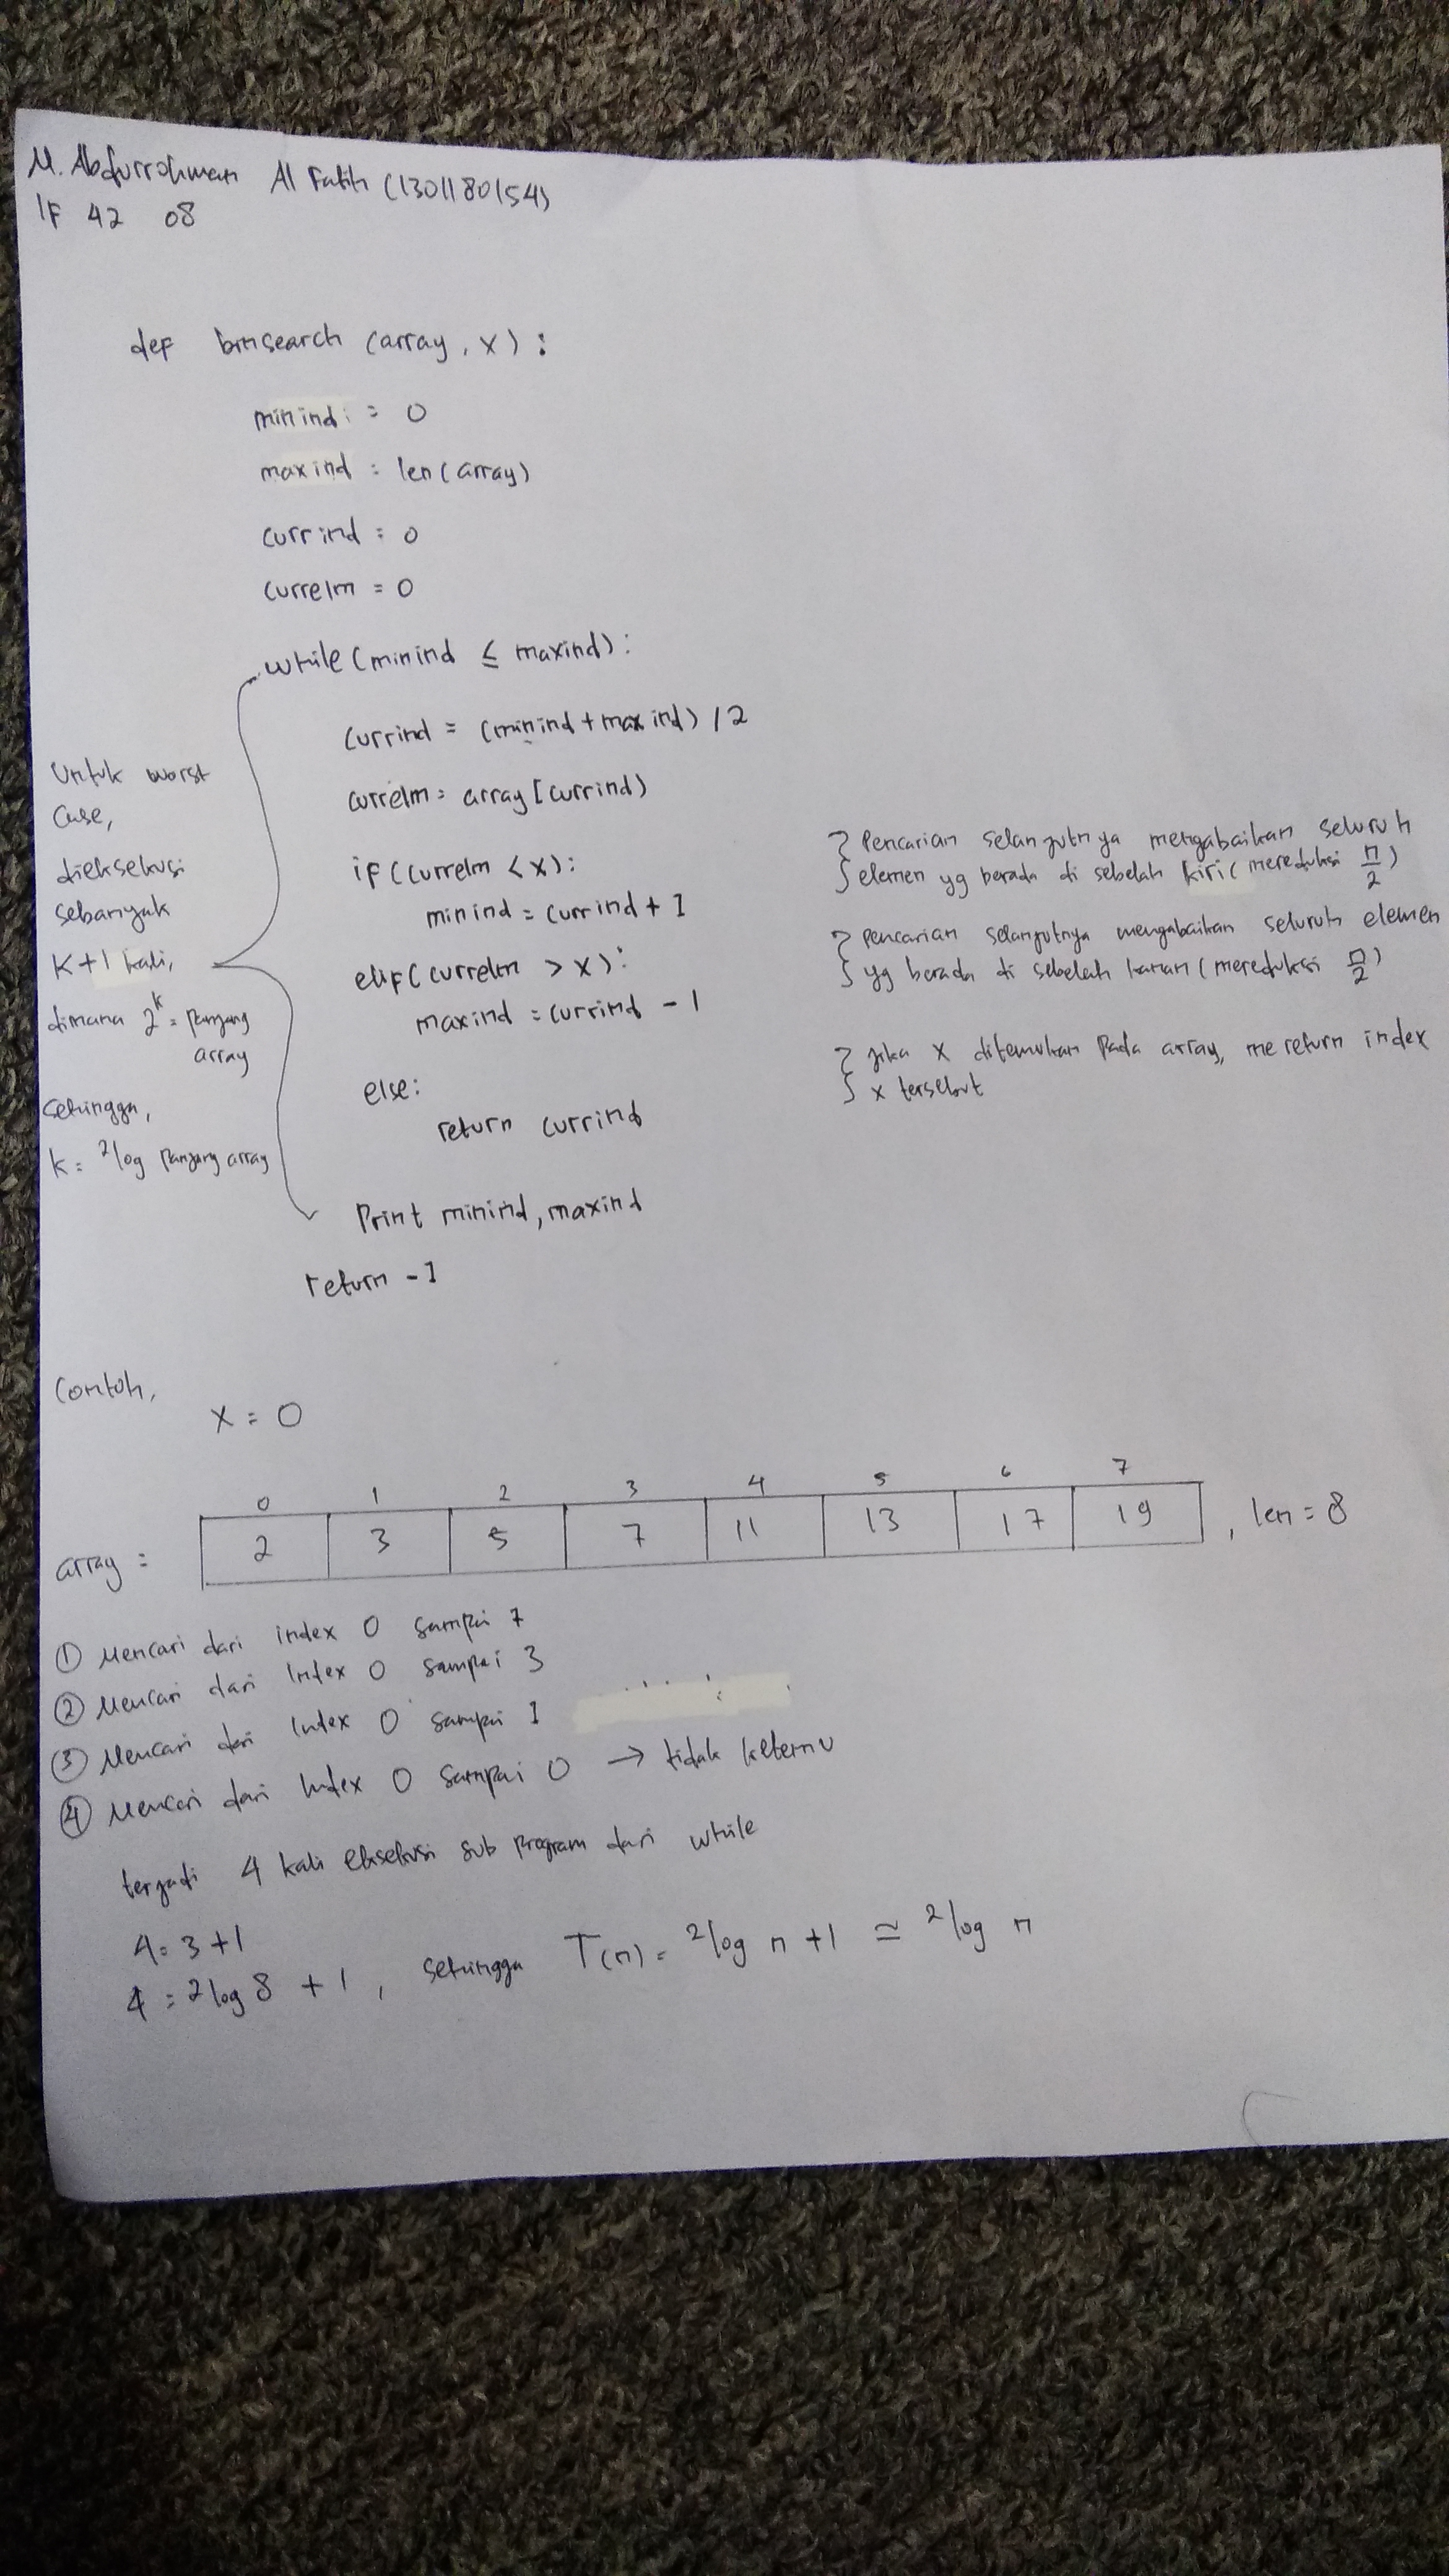 M. Abdurrohman Al Fatih (1301180154)
IF 42 08
def binsearch (array, x) :
minind = 0
maxind = len(array)
currind = 0
currelm = 0
while (minind ≤ maxind) :
currind = (minind + maxind) / 2
currelm = array [currind)
if (currelm < x) :
minind = currind + 1
elif (currelm > x) :
maxind = currind - 1
else :
return currind
Print minind, maxind
return -1
Untuk worst
case,
dieksekusi
sebanyak
K+1 kali,
dimana 2^k = panjang
array
sehingga,
k = ²log panjang array
} Pencarian selanjutnya mengabaikan seluruh
elemen yg berada di sebelah kiri (mereduksi n/2)
} pencarian selanjutnya mengabaikan seluruh elemen
yg berada di sebelah kanan (mereduksi n/2)
} jika x ditemukan pada array, me return index
x tersebut
Contoh,
x = 0
0 1 2 3 4 5 6 7
array = 2 3 5 7 11 13 17 19 , len = 8
① Mencari dari index 0 sampai 7
② Mencari dari index 0 sampai 3
③ Mencari dari index 0 sampai 1
④ Mencari dari index 0 sampai 0 → tidak ketemu
terjadi 4 kali eksekusi sub program dari while
4 = 3+1
4 = 2 log 8 + 1 , sehingga T(n) = ²log n + 1 ≃ ²log n